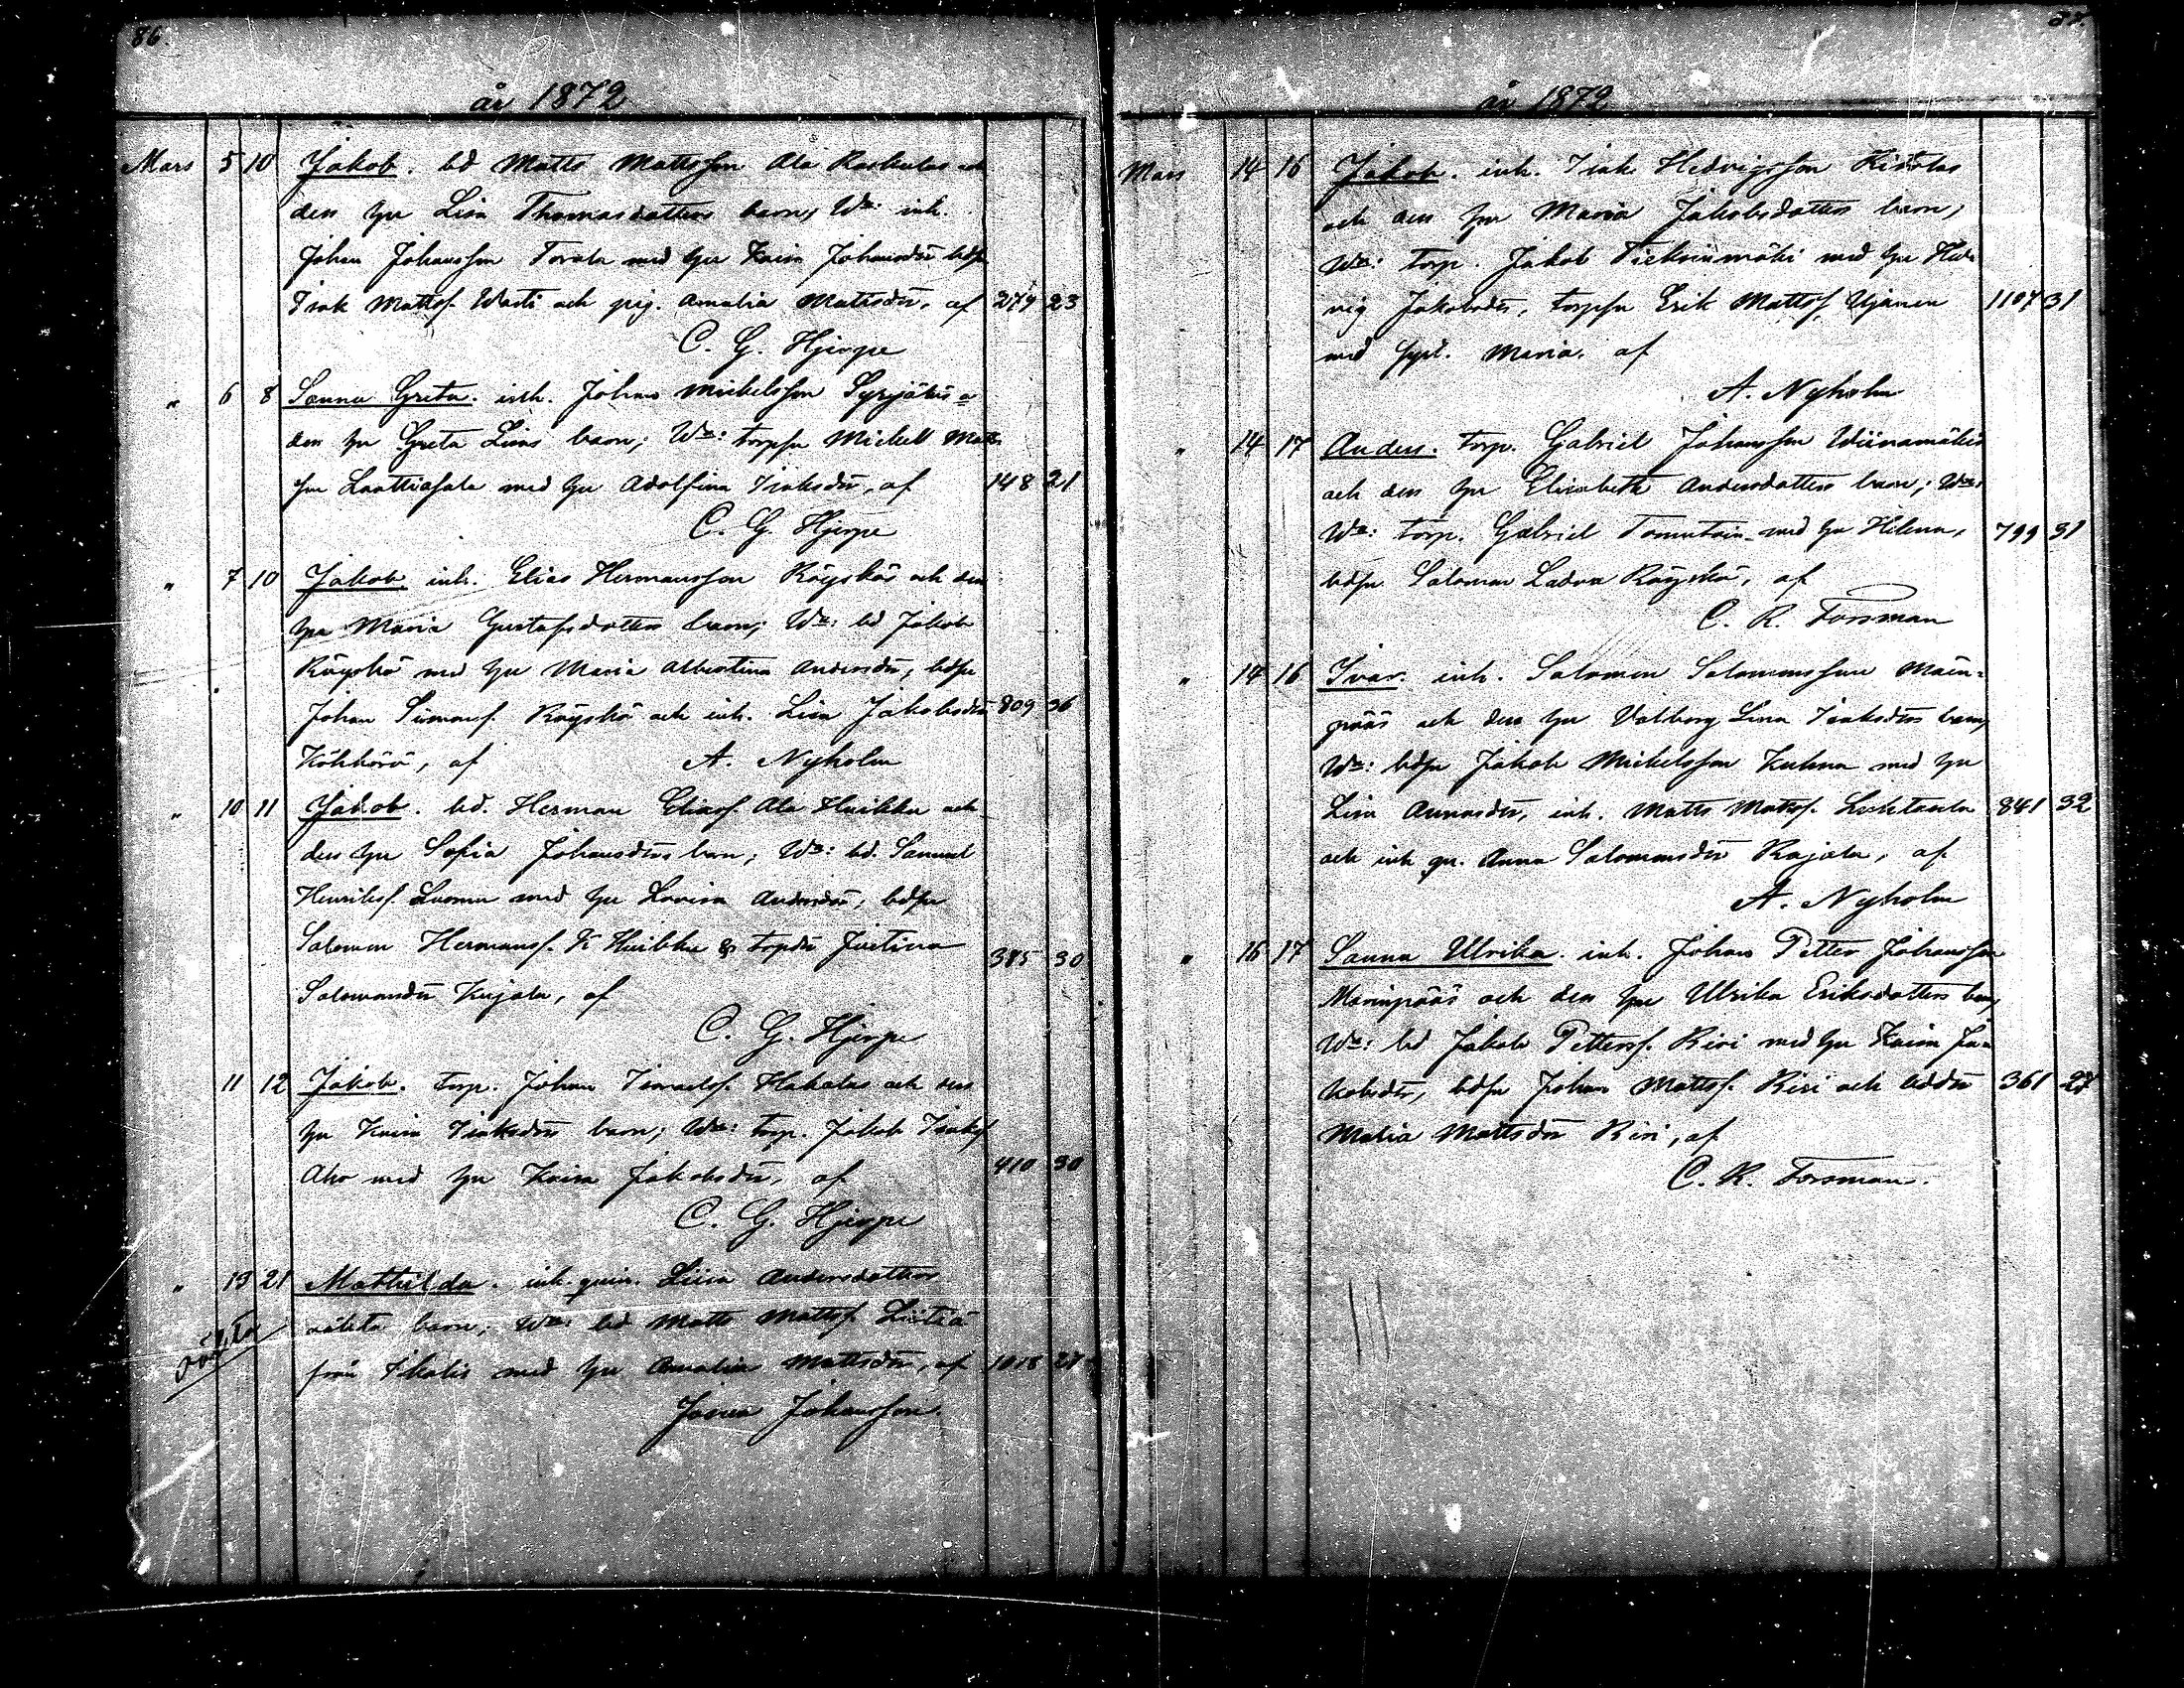 86.
år 1872
Mars 5 10 Jakob. bd Matts Mattsson Ala Raskulas och
dess hu Lisa Thomasdotters barn; Wn: inh.
Johan Johansson Torala med hu Kaisa Johansdr bdsn
Isak Mattsf. Wasti och pig. Amalia Mattsdr, af 279 23
C. G. Hjerpe
" 6 8 Sanna Greta. inh. Johan Mickelsson Syrjäläs o
dess hu Greta Lisas barn; Wn: torpsn Mickell Matts
son Laattiasala med hu Adolfina Isaksdr, af 148 21
C. G. Hjerpe
" 7 10 Jakob. inh. Elias Hermansson Röyskös och dess
hu Maria Gustafsdotters barn; Wn: bd Jakob
Röyskö med hu Maria Albertina Andersdr, bdsn
Johan Simonsf. Röyskö och inh. Lisa Jakobsdr 809 36
Kökkörö, af A. Nyholm
" 10 11 Jakob. bd. Herman Eliasf. Ala Huikku och
dess hu Sofia Johansdrs barn; Wn: bd. Samuel
Henriksf. Luoma med hu Lovisa Andersdr, bdsn
Salomon Hermansf. Y Huikku & torpdr Justina 385 30
Salomonsdr Kujala, af
C. G. Hjerpe
11 12 Jakob. torp. Johan Israelsf. Hakalas och dess
hu Kaisa Isaksdrs barn; Wn: torp. Jakob Isaksf
Aho med hu Kaisa Jakobsdr, af 410 30
C. G. Hjerpe
" 13 21 Mathilda. inh. qvin. Lisa Andersdotters
oäkta barn; Wn: bd Matts Mattsf. Liitiä
oäkta från Ikalis med hu Amalia Mattsdr, af 1018 27
Josua Johansson.
87.
år 1872
Mars 14 16 Jakob. inh. Isak Hedvigsson Kidölas
och dess hu Maria Jakobsdotters barn;
Wn: torp. Jakob Pieksinmäki med hu Hed-
vig Jakobsdr, torpsn Erik Mattsf. Ujanen 1107 31
med syst. Maria, af
A. Nyholm
" 14 17 Anders. torp. Gabriel Johansson Wiinamäkis
och dess hu Elisabeth Andersdotters barn; Wn:
Wn: torp. Gabriel Tomutain med hu Helena, 799 31
bdsn Salomon Ladva Röyskö, af
C. R. Forsman
" 14 16 Ivar. inh. Salomon Salomonsson Mäen-
pääs och dess hu Valborg Lisa Isaksdrs barn;
Wn: bdsn Jakob Mickelsson Kuhna med hu
Lisa Annasdr, inh. Matts Mattsf. Lechtaala 841 32
och inh qv. Anna Salomonsdr Rajala, af
A. Nyholm
" 16 17 Sanna Ulrika. inh. Johan Petter Johansson
Mäenpääs och dess hu Ulrika Eriksdotters barn;
Wn: bd Jakob Pettersf. Risi med hu Kaisa Ja-
kobsdr, bdsn Johan Mattsf. Risi och bddr 361 27
Maria Mattsdr Risi, af
C. R. Forsman.